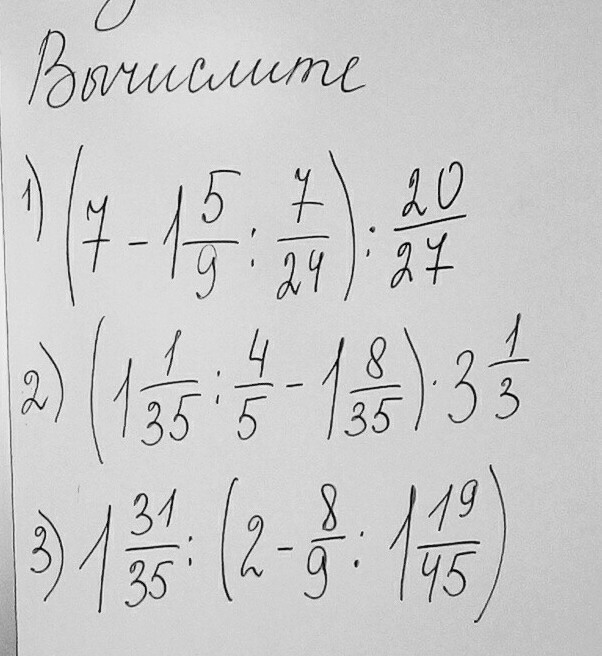 Вычислите
1) (7 - 1 5/9 : 7/24) : 20/27
2) (1 1/35 : 4/5 - 1 8/35) · 3 1/3
3) 1 31/35 : (2 - 8/9 : 1 19/45)